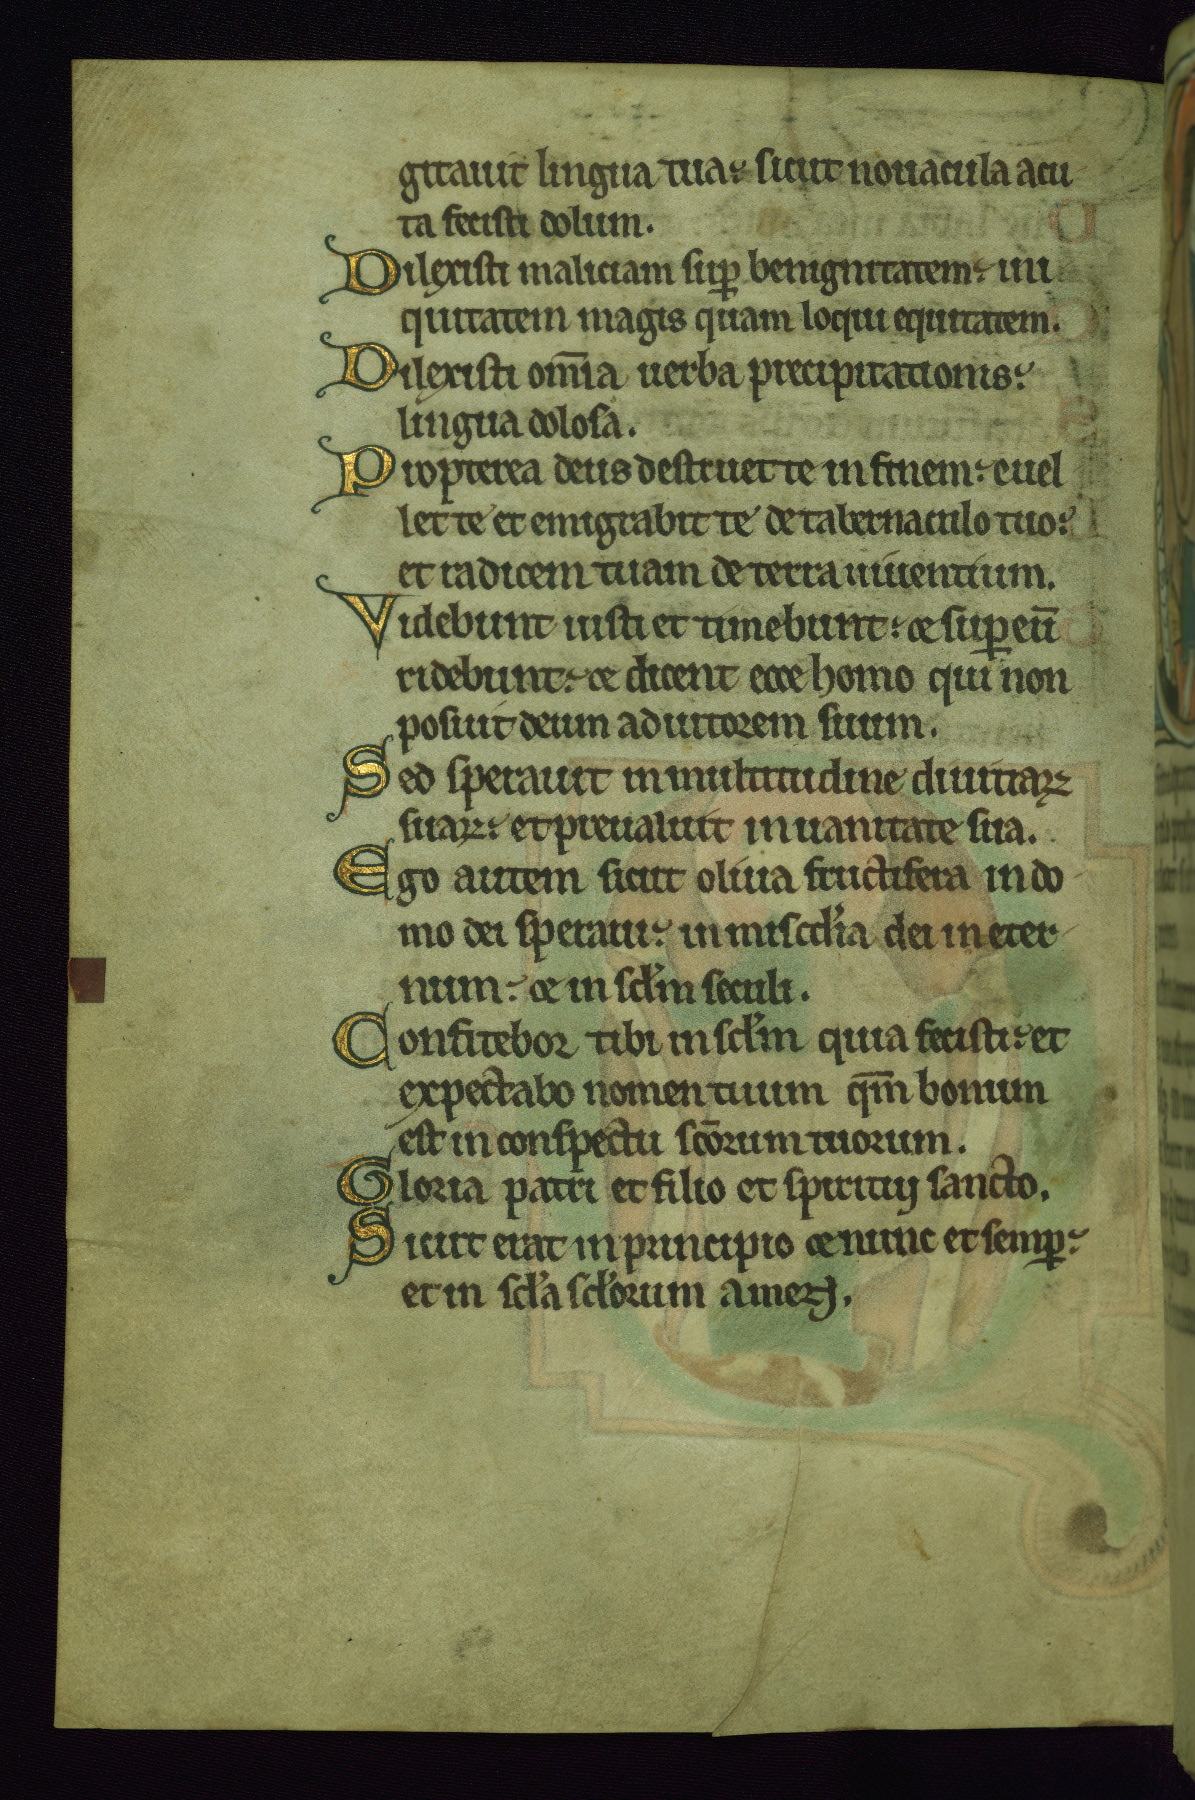 gitauit lingua tua: sicut nouacula acu
ta fecisti dolum.
Dilexisti maliciam sup̄ benignitatem: ini
quitatem magis quam loqui equitatem.
Dilexisti om̄ia uerba precipitationis:
lingua dolosa.
Propterea deus destruet te in finem: euel
let te et emigrabit te de tabernaculo tuo:
et radicem tuam de terra uiuentium.
Videbunt iusti et timebunt: & sup̄ eū
ridebunt: & dicent ecce homo qui non
posuit deum adiutorem suum.
Sed sperauit in multitudine diuitiaꝝ
suaꝝ: et preualuit in uanitate sua.
Ego autem sicut oliua fructifera in do
mo dei speraui: in misc̄dia dei in eter
num: & in scl̄m seculi.
Confitebor tibi in scl̄m quia fecisti: et
expectabo nomen tuum qm̄ bonum
est in conspectu sc̄orum tuorum.
Gloria patri et filio et spiritui sancto.
Sicut erat in principio & nunc et semp̄:
et in scl̄a scl̄orum amen.